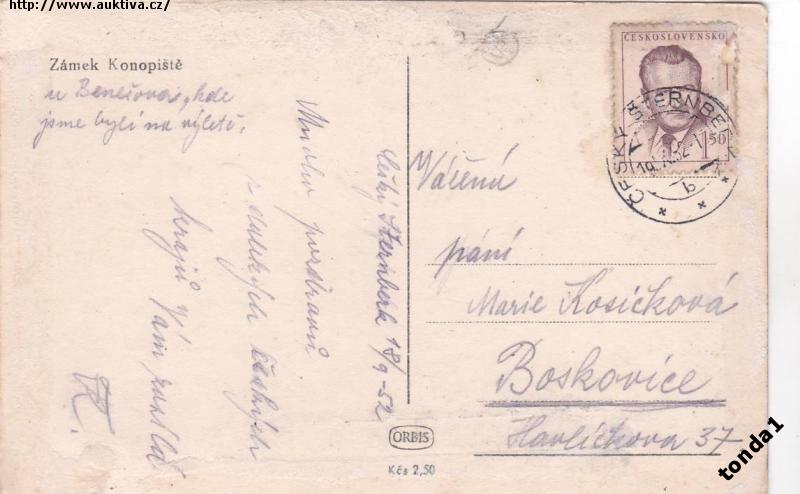 http://www.auktiva.cz/
Zámek Konopiště
u Benešova, kde
jsme byli na výletě.
Český Šternberk 18/9-52
Mnoho pozdravů
z dalekých českých
krajů Vám
ČESKOSLOVENSKO
1,50
ČESKÝ ŠTERNBERK
b
Vážená
paní
Marie Kosičková
Boskovice
Havlíčkova 37
ORBIS
Kčs 2,50
tonda1